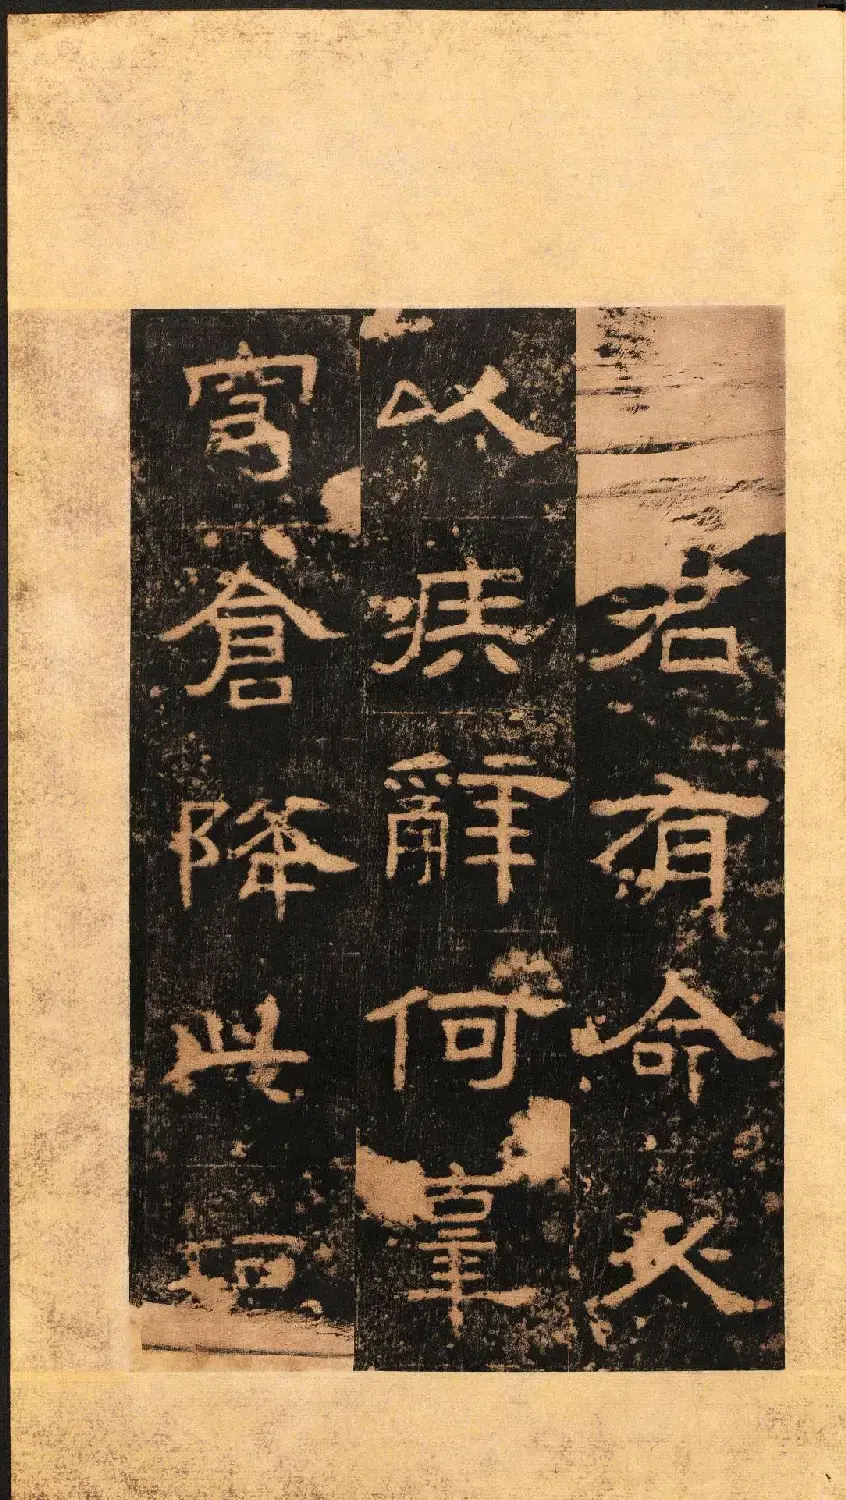 君有命必
以疾辭何辜
穹倉降此